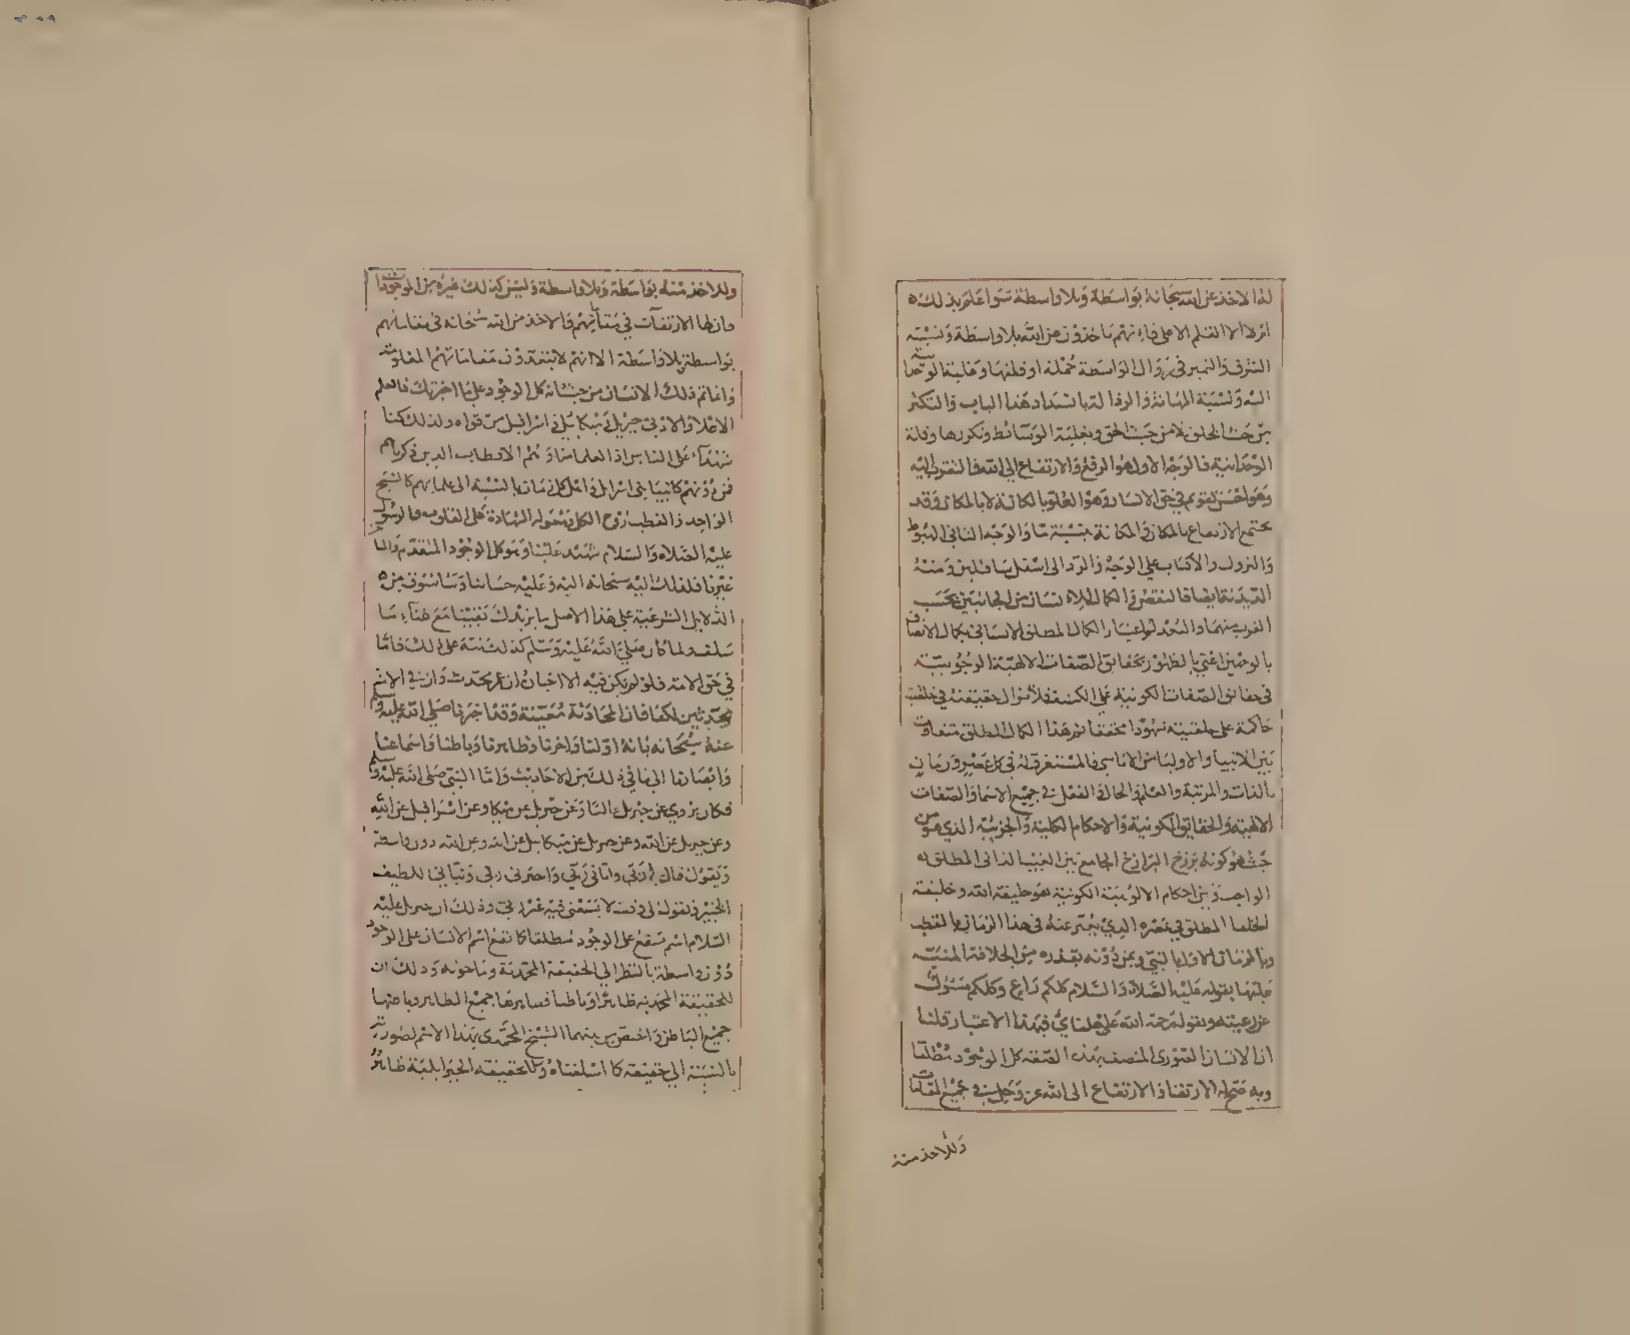 لذا الاخذ عن الله سبحانه بواسطة وبلا واسطة سوا علم بذلك
ام لا الا القلم الاعلى فانهم ياخذون من الله بلا واسطة ونسبته
الشرف والتميز في زوال الواسطة جملة او قلتها وغلبة الوحدا
نية
اليه ونسبة المهانة والرذالة بانسداد هذا الباب والتكثر
من حيث الخلق لا من حيث الحق وبغلبة الوسائط وتكررها وقلة
الوحدانية فالوجه الاول هو الرفع والارتفاع الى الله والتقرب اليه
وهو احسن تقويم في حق الانسان وهو العلو بالمكانة لا بالمكان وقد
يجتمع الارتفاع بالمكان والمكانة بنسبة ما والوجه الثاني الهبوط
والنزول والاكباب على الوجه والرد الى اسفل سافلين ومنه
ايضا النقص والكمال للانسان من الجانبين بحسب
القرب منهما والبعد واعتبار الكمال المطلق الانساني بكمال الاتصاف
بالوجهين اعني بالظهور بحقائق الصفات الالهية الوجوبية
في حقائق الصفات الكونية على الكشف فلا تزال حقيقته في خلقيته
حاكمة على خلقيته شهودا محققا ثم هذا الكمال المطلق متفاوت
بين الانبيا والاوليا من الاناسي فالمستغرق له في كل عصر وزمان
بالذات والمرتبة والعلم والحال والفعل في جميع الاسما والصفات
الالهية والحقائق الكونية والاحكام الكلية والجزئية الذي هو من
حيث هو كونه برزخ البرازخ الجامع بين الغيب الذاتي المطلق له
الواحد وبين احكام الالوهية الكونية هو خليفة الله وخليفة
الخلفا المطلق في عصره الذي يعبر عنه في هذا الزمان بالقطب
وبالزمان الاول بالنبي وبمن دونه بقدره من الخلافة المنبه
عليها بقوله عليه الصلاة والسلام كلكم راع وكلكم مسئول
عن رعيته وبقوله رحمة الله على خلفائي فبهذا الاعتبار قلنا
ان الانسان الصوري المتصف بهذه الصفة كل الوجود مطلقا
وبه صح له الارتقا والارتفاع الى الله عز وجل في جميع المقامات
وللاخذ منه
وللاخذ منه بواسطة وبلا واسطة وليس كذلك غيره من الموجودات
وان لها الارتفاعات في مقاماتهم والاخذ من الله سبحانه في مقاماتهم
بواسطة وبلا واسطة الا انهم لا يتعدون مقاماتهم المعلومة
وانما تم ذلك الانسان من حيث انه كل الوجود على ما اخبرتك فالعلم
الاعلا والادنى جبريل وميكائيل واسرافيل من قواه ولذلك كنا
شهداء على الناس اذ العلما منا وهم الاقطاب الذين ذكرناهم
فمن دونهم كانبيا بني اسرائيل واهل كل زمان بالنسبة الى علمائهم كالشبح
الواحد والقطب روح الكل ومنه له الشهادة على القلوب والرسول
عليه الصلاة والسلام شهيد علينا وهو كل الوجود المتقدم والمتا
خر
غيرنا فلذلك اليه سبحانه اليه وعليه حسابنا وساستوفي من
الدلايل الشرعية على هذا الاصل ما يزيدك يقينا مع هنا ما
سلف ولما كان صلى الله عليه وسلم كذلك نبه على ذلك فاما
في حق الامة فلو لم يكن فيه الا اخباره ان عمر محدث وان في الامم
محدثين لكفا فان المحادثة معينة وقد اخبرنا صلى الله عليه وسلم
عنه سبحانه بانه اولنا واخرنا وظاهرنا وباطنا واسماعنا
وابصارنا الى ما في ذلك من الاحاديث واما النبي صلى الله عليه وسلم
فكان يروي عن جبريل تارة وعن جبريل عن ميكائيل وعن اسرافيل عن الله
وعن جبريل عن الله وعن جبريل عن ميكائيل عن الله وعن الله دون واسطة
ويقول قال لي ربي واتاني ربي واخبرني ربي ونبأني اللطيف
الخبير ويقول لي وقت لا يسعني فيه غير ربي وذلك ان جبريل عليه
السلام اسم يقع على الوجود مطلقا كما يقع اسم الانسان على الوجود
دون واسطة بالنظر الى الحقيقة المحمدية وما حوته وذلك ان
للحقيقة المحمدية ظاهرا وباطنا فظاهرها جميع الظاهر وباطنها
جميع الباطن واختص من بينهما الشبح المحمدي بهذا الاسم لصورته
بالنسبة الى حقيقته كما اسلفناه وللحقيقة الجبرائيلية ظاهر